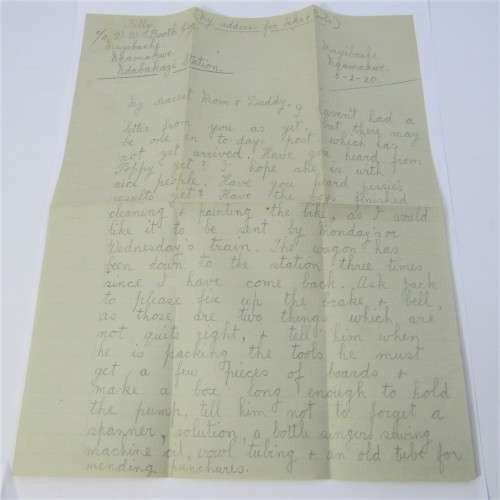 Tilly (My address for bike & tools)
c/o W. W. Booth Esq
Mayibashe
Nqamakwe
Ndabakazi Station.
Mayibashe
Nqamakwe.
5-2-20.
My dearest Mom & Daddy,
I havent had a
letter from you as yet, but there may
be one in to days post which has
not yet arrived. Have you heard from
Poppy yet? I hope she is with
nice people. Have you heard
results yet? Have the boys finished
cleaning & painting the bike, as I would
like it to be sent by Monday's or
Wednesday's train. The wagon has
been down to the station three times
since I have come back. Ask Jack
to please fix up the brake & bell,
as those are two things which are
not quite right, & tell him when
he is packing the tools he must
get a few pieces of boards &
make a box long enough to hold
the pump, tell him not to forget a
spanner, solution, a bottle singer sewing
machine oil, tubing & an old tube for
mending punctures.